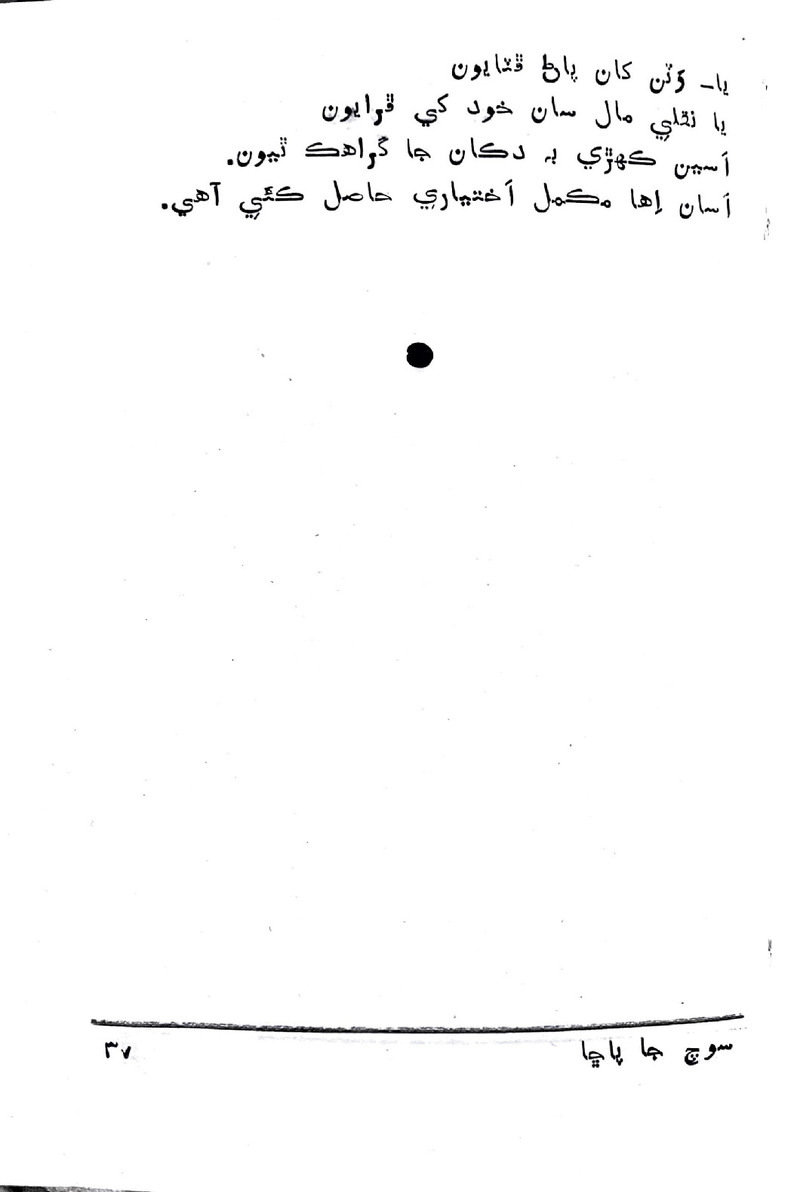 يا۔ وَٽن کان پاڻ ڦٽايون
يا نقلي مال سان خود کي ڦرايون
اَسين ڪهڙي بہ دڪان جا گراهڪ ٿيون.
اَسان اِها مڪمل اَختياري حاصل ڪئي آهي.
سوچ جا پاڇا
٣٧